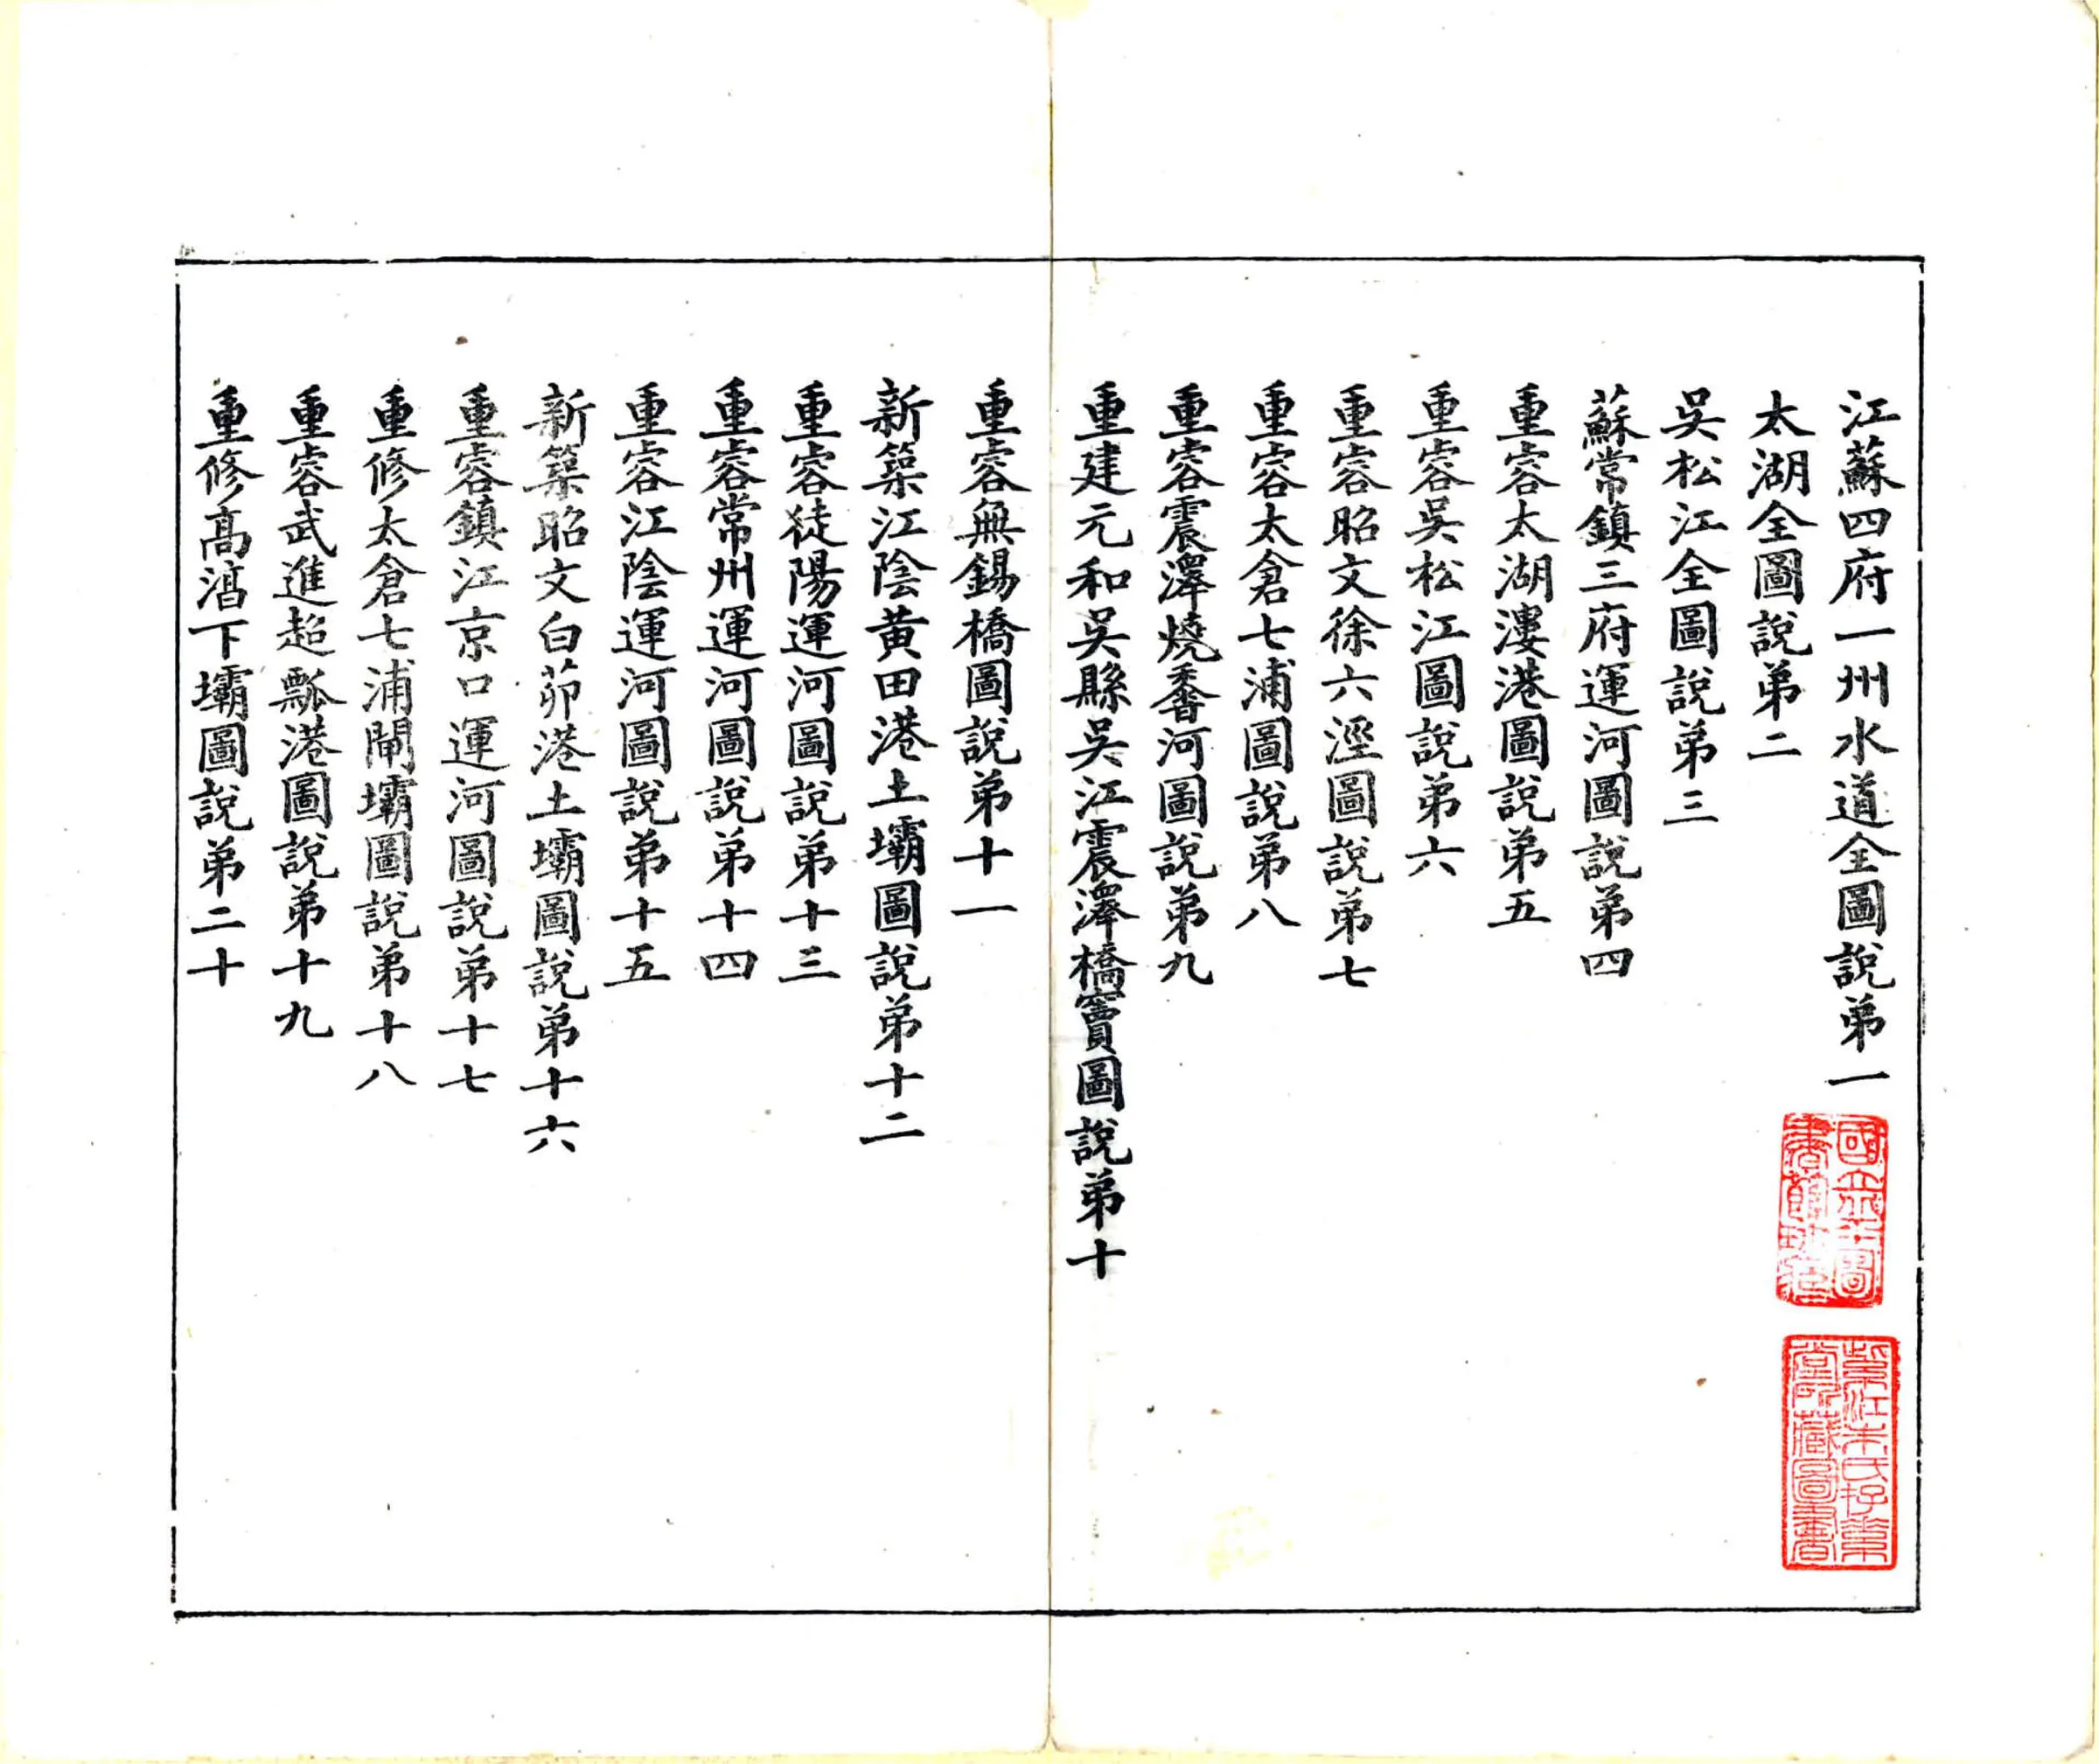 江蘇四府一州水道全圖說弟一
太湖全圖說弟二
吳松江全圖說弟三
蘇常鎮三府運河圖說弟四
重濬太湖漊港圖說弟五
重濬吳松江圖說弟六
重濬昭文徐六涇圖說弟七
重濬太倉七浦圖說弟八
重濬震澤燒香河圖說弟九
重建元和吳縣吳江震澤橋竇圖說弟十
重濬無錫橋圖說弟十一
新築江陰黄田港土壩圖說弟十二
重濬徒陽運河圖說弟十三
重濬常州運河圖說弟十四
重濬江陰運河圖說弟十五
新築昭文白茆港土壩圖說弟十六
重濬鎮江京口運河圖說弟十七
重修太倉七浦閘壩圖說弟十八
重濬武進超瓢港圖說弟十九
重修髙湻下壩圖說弟二十
國立北平圖
書館珍藏
紫江朱氏存素
堂所藏圖書